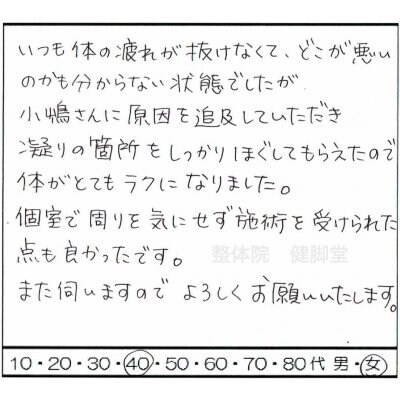 いつも体の疲れが抜けなくて、どこが悪い
のかも分からない状態でしたが
小嶋さんに原因を追及していただき
凝りの箇所をしっかりほぐしてもらえたので
体がとてもラクになりました。
個室で周りを気にせず施術を受けられた
点も良かったです。
整体院 健脚堂
また伺いますので よろしくお願いいたします。
10・20・30・40・50・60・70・80代 男・女